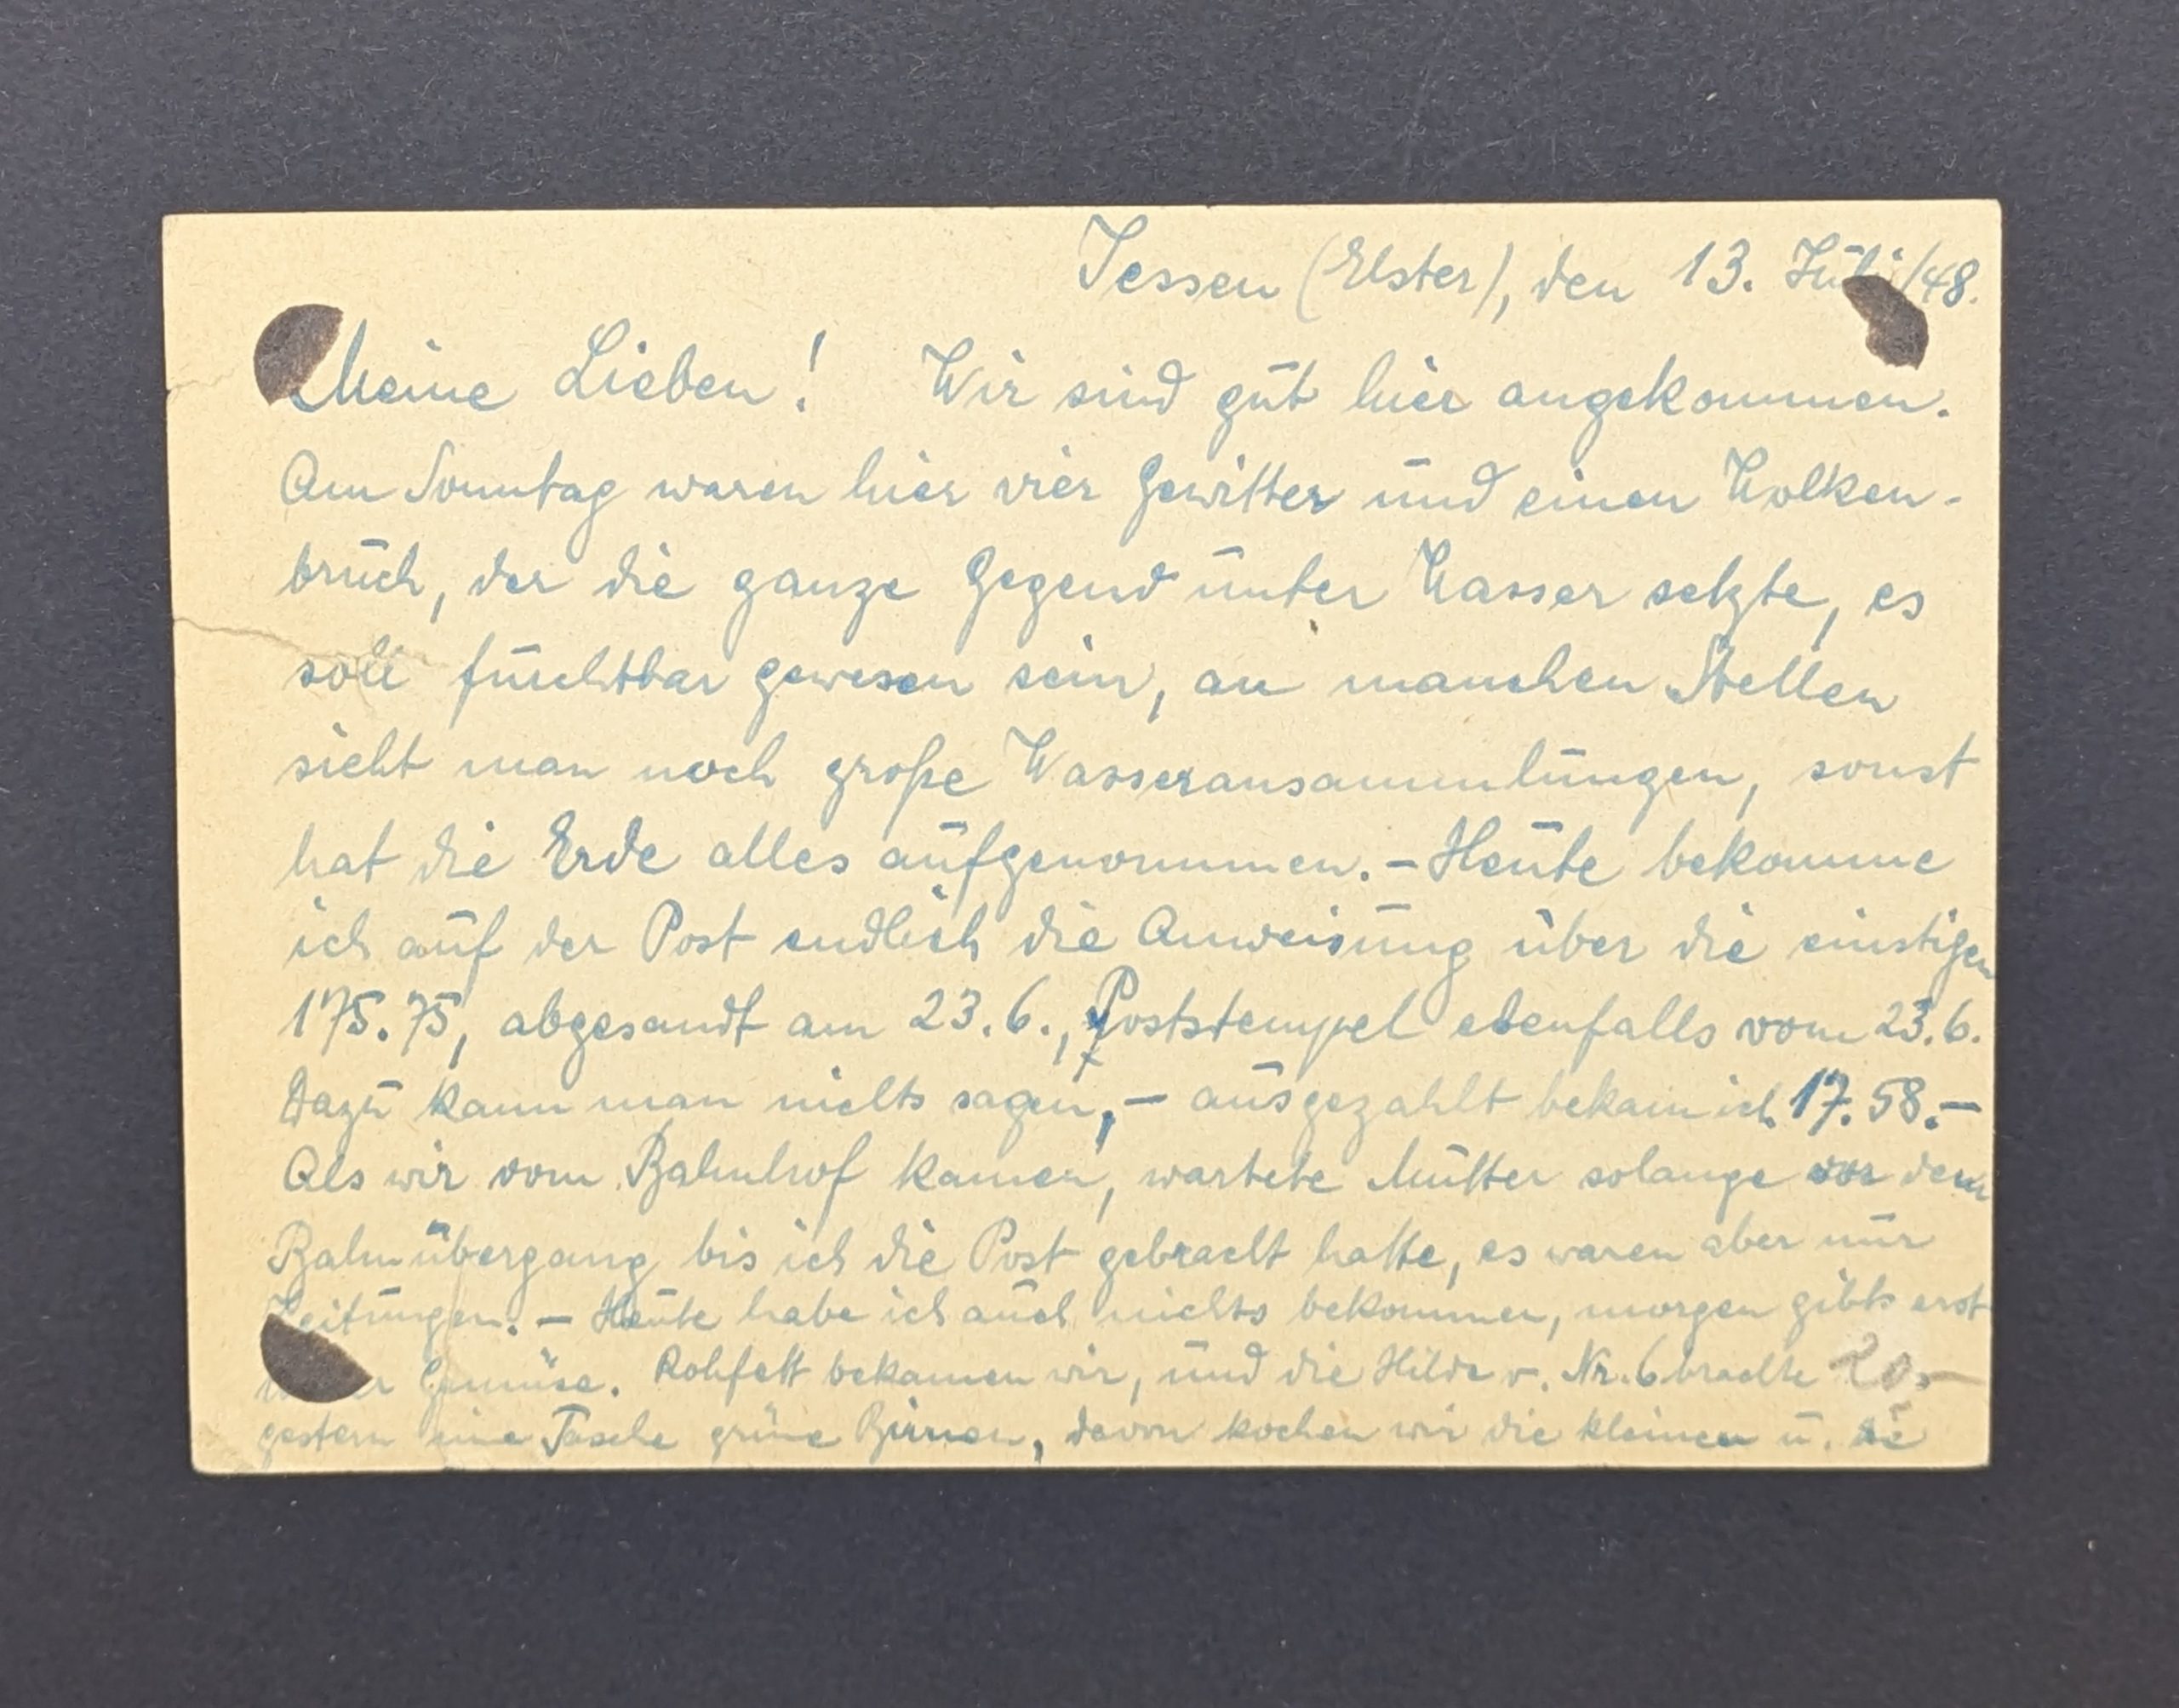 Jessen (Elster), den 13. Juli/48.
Meine Lieben! Wir sind gut hier angekommen.
Am Sonntag waren hier vier Gewitter und einen Wolken-
bruch, der die ganze Gegend unter Wasser setzte, es
soll furchtbar gewesen sein, an manchen Stellen
sieht man noch große Wasseransammlungen, sonst
hat die Erde alles aufgenommen. – Heute bekomme
ich auf der Post endlich die Anweisung über die einstigen
175.75, abgesandt am 23.6., Poststempel ebenfalls vom 23.6.
Dazu kann man nichts sagen, – ausgezahlt bekam ich 17.58. –
Als wir vom Bahnhof kamen, wartete Mutter solange vor dem
Bahnübergang bis ich die Post gebracht hatte, es waren aber nur
Zeitungen. – Heute habe ich auch nichts bekommen, morgen gibts erst
Gemüse. Rohfett bekamen wir, und die Hilde v. Nr. 6 brachte 20,-
gestern eine Tasche grüne Birnen, davon kochen wir die kleinen u.